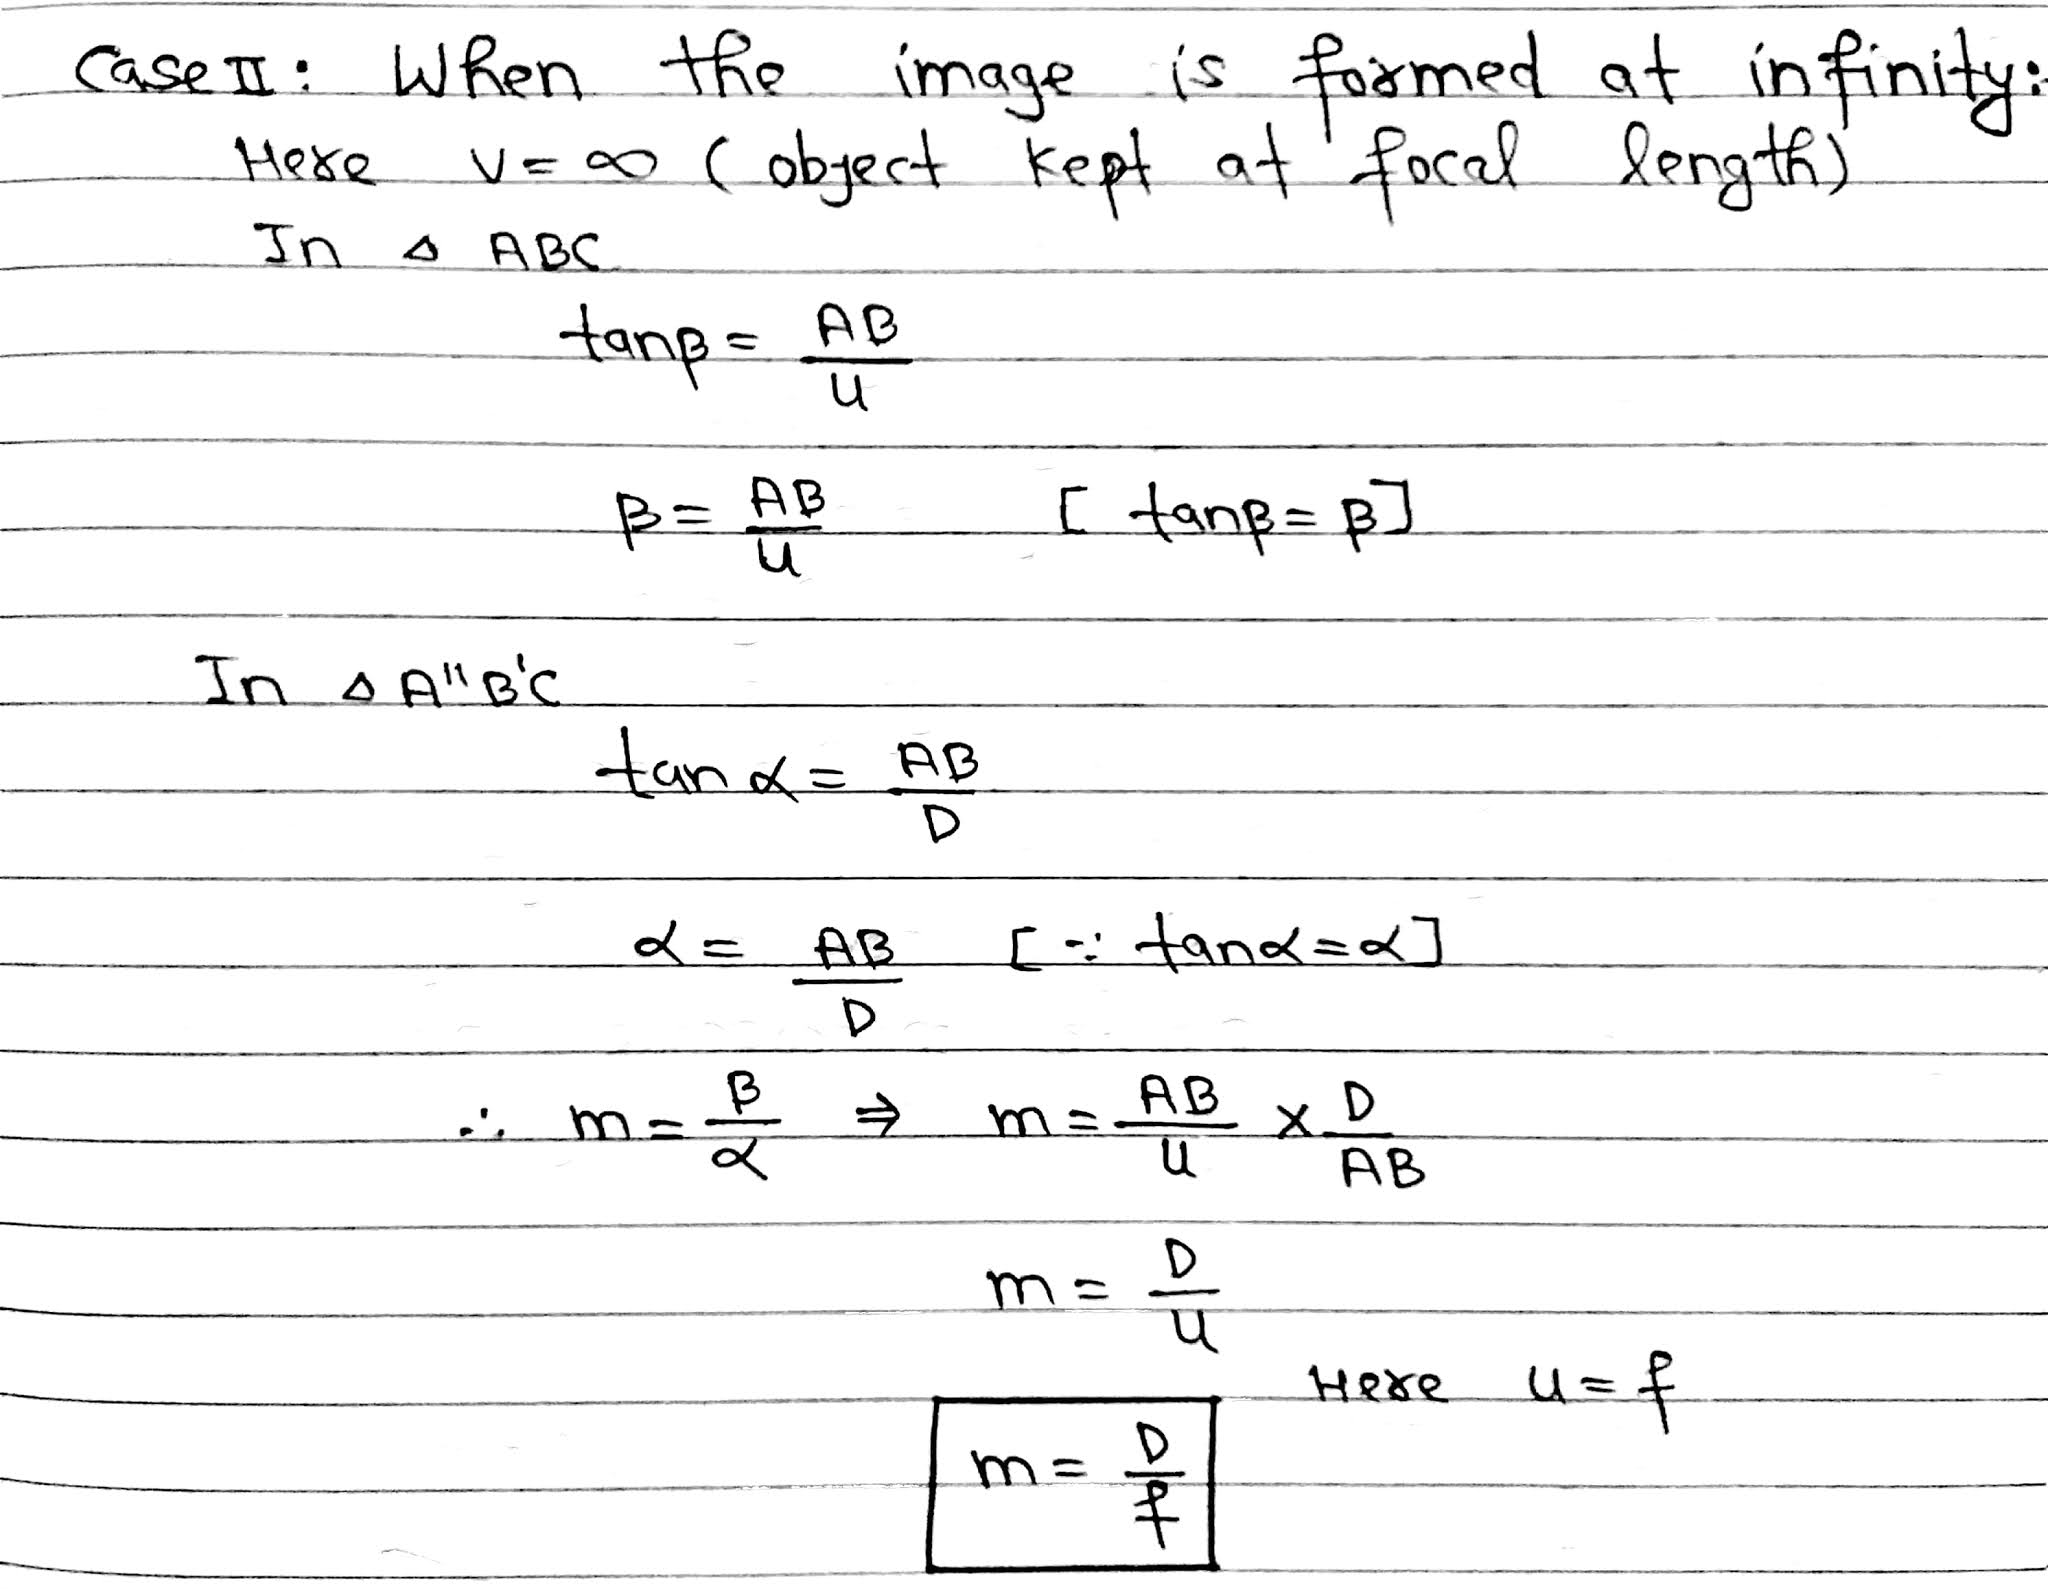 Case II: When the image is formed at infinity:
Here v = ∞ (object kept at focal length)
In △ ABC
tanβ = AB/u
β = AB/u [ tanβ = β ]
In △ A"B'C
tan α = AB/D
α = AB/D [∵ tanα = α]
∴ m = β/α ⇒ m = AB/u × D/AB
m = D/u
Here u = f
m = D/f